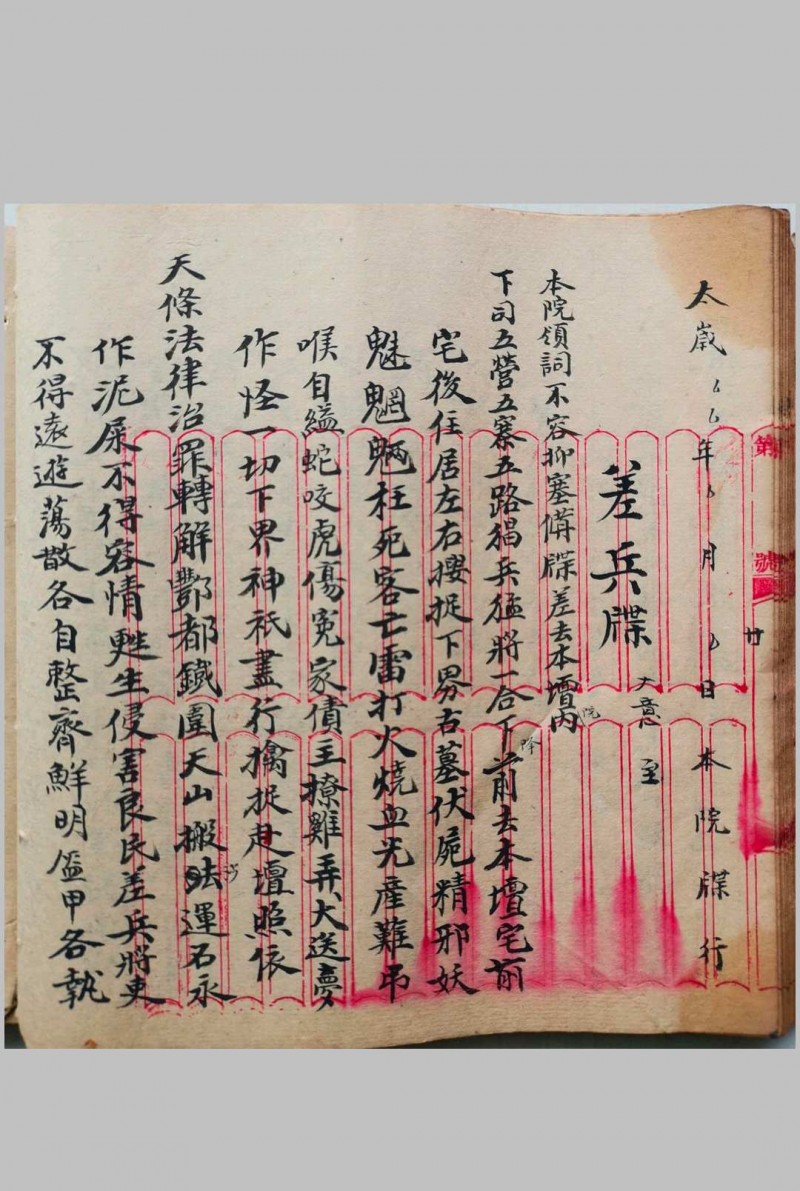 太歲 年 月 日 本院牒行
第 號
廿
差兵牒
大意 至
本院領詞不容抑塞備牒差去本壇內
院
下司五營五寨五路猖兵猛將一合下前去本壇宅前
降
宅後住居左右搜捉下界古墓伏屍精邪妖
魅魍魎枉死客亡雷打火燒血光產難吊
喉自縊蛇咬虎傷冤家債主撩雞弄犬送夢
作怪一切下界神祇盡行擒捉赴壇照依
天條法律治罪轉解酆都鐵圍天山搬沙運石永
沙
作泥屎不得容情甦生侵害良民差兵將吏
不得遠遊蕩散各自整齊鮮明盔甲各執